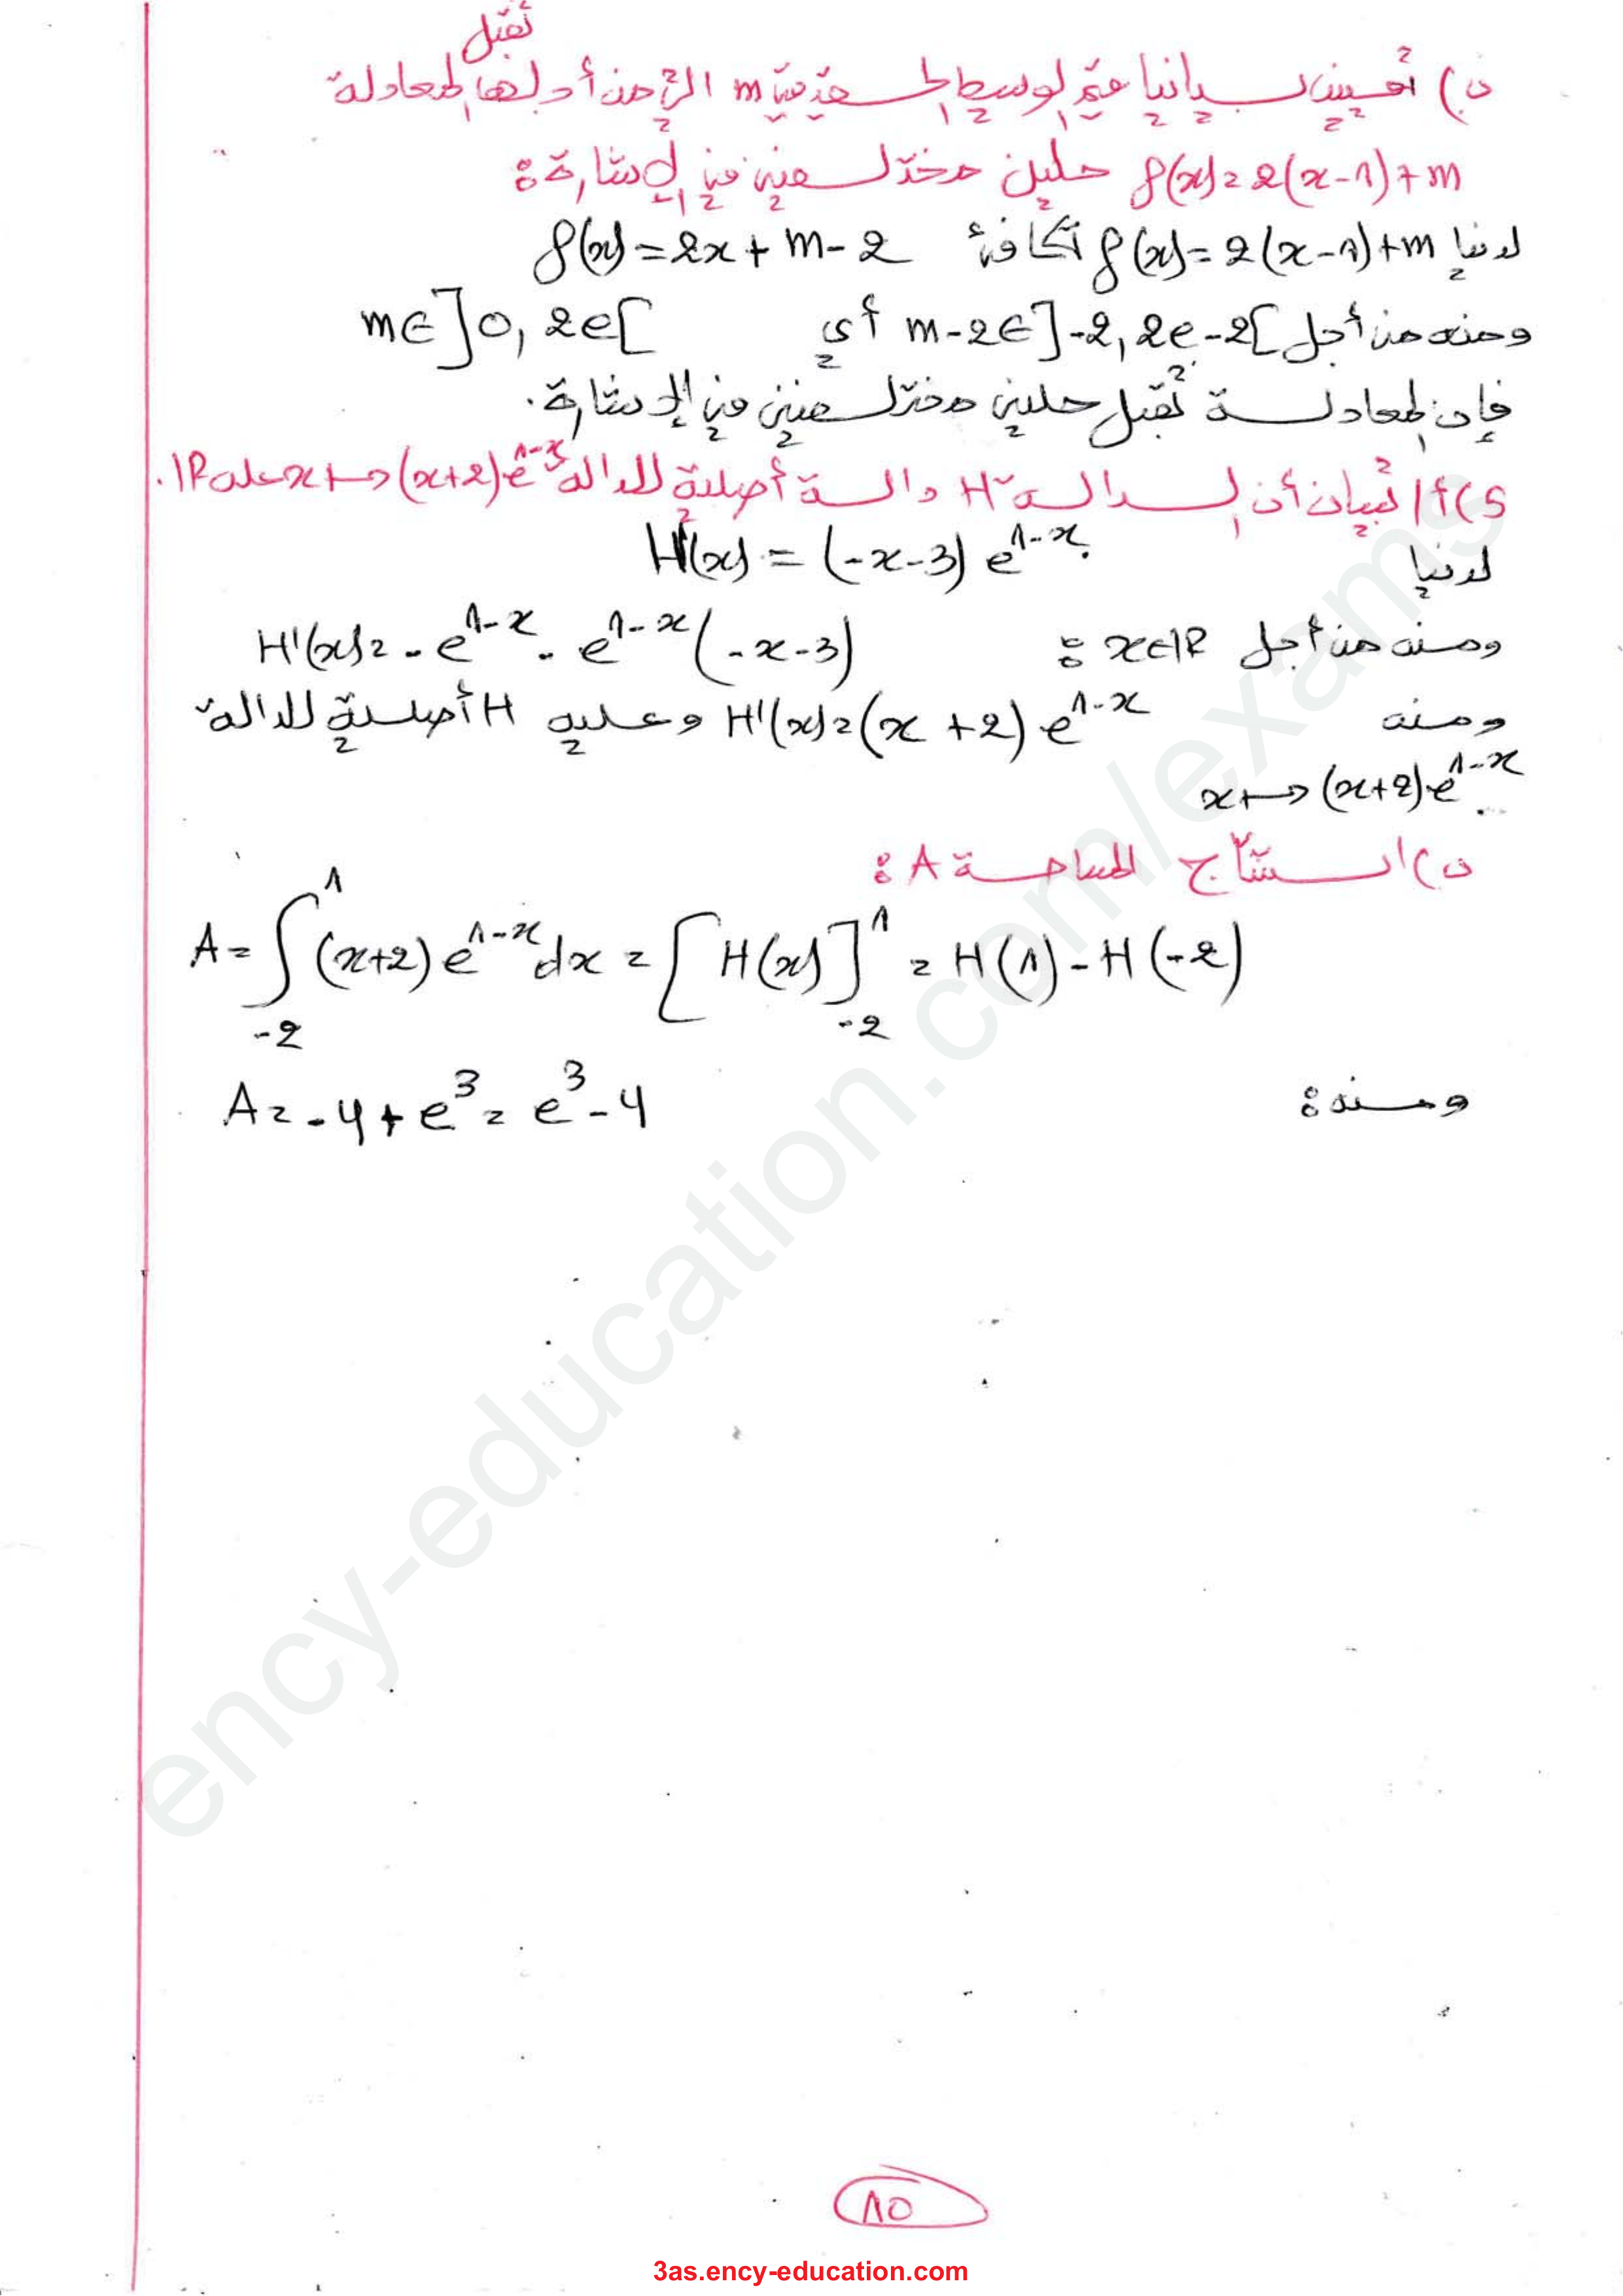 ب) تعيين بيانيا قيم الوسيط الحقيقي m التي من أجلها تقبل المعادلة
f(x)=2(x-1)+m حلين مختلفين في الإشارة:
لدينا f(x)=2(x-1)+m تكافئ f(x)=2x+m-2
ومنه من أجل m-2∈]-2,2e-2[ أي m∈]0,2e[
فإن المعادلة تقبل حلين مختلفين في الإشارة.
5)أ/ تبيان أن الدالة H دالة أصلية للدالة x↦(x+2)e^{1-x} على ℝ.
لدينا H(x)=(-x-3)e^{1-x}.
ومنه من أجل x∈ℝ: H'(x)=-e^{1-x}-e^{1-x}(-x-3)
ومنه H'(x)=(x+2)e^{1-x} وعليه H أصلية للدالة
x↦(x+2)e^{1-x}.
ب) استنتاج المساحة A:
A=∫_{-2}^{1}(x+2)e^{1-x}dx=[H(x)]_{-2}^{1}=H(1)-H(-2)
ومنه: A=-4+e^3=e^3-4
10
3as.ency-education.com
ency-education.com/exams